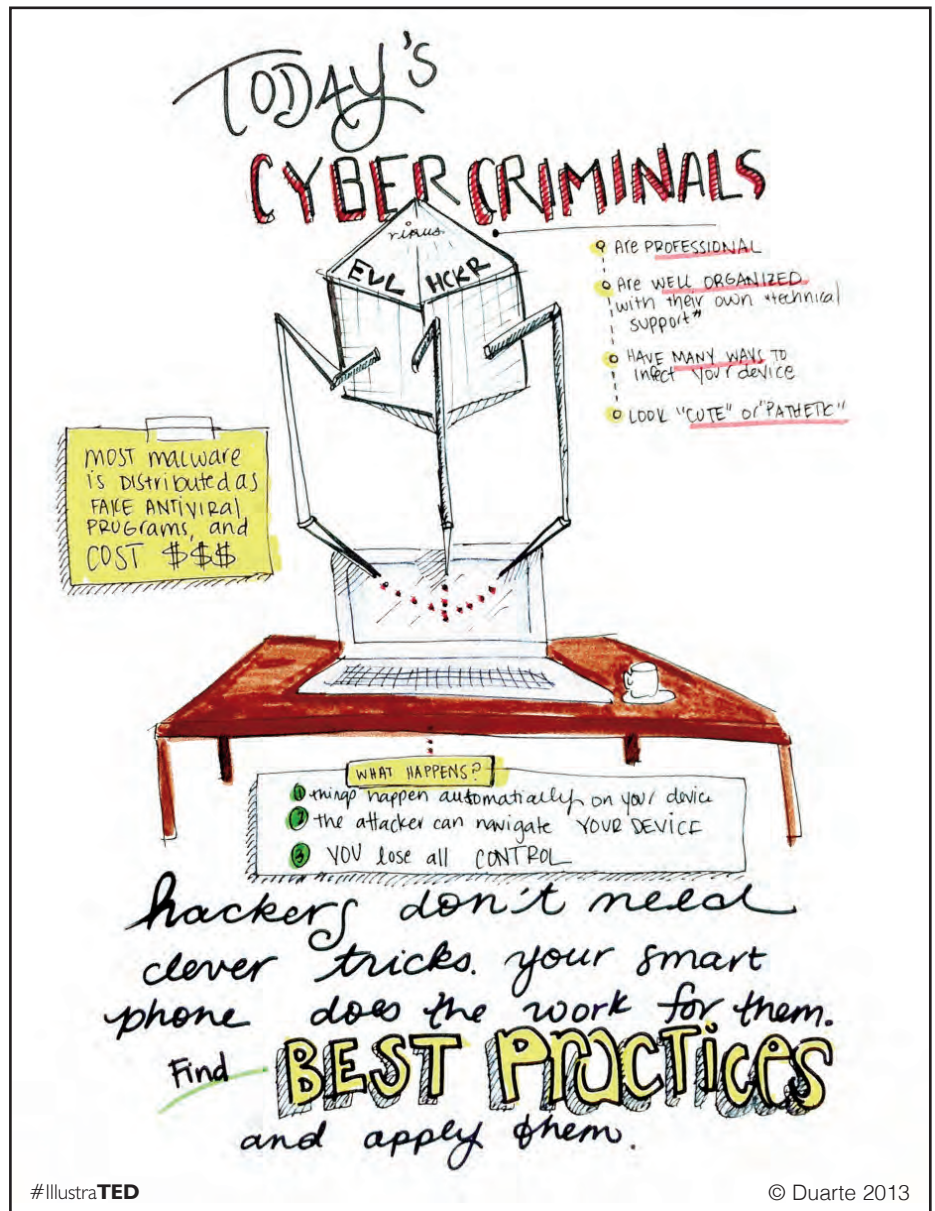 TODAY'S
CYBERCRIMINALS
virus
EVL HCKR
Are PROFESSIONAL
Are WELL ORGANIZED
with their own "technical
support"
HAVE MANY WAYS TO
infect your device
LOOK "CUTE" or "PATHETIC"
MOST malware
is Distributed as
FAKE ANTIVIRal
PROGrams, and
COST $$$
WHAT HAPPENS?
1 things happen automatically on your device
2 the attacker can navigate YOUR DEVICE
3 YOU lose all CONTROL
hackers don't need
clever tricks. your smart
phone does the work for them.
Find BEST PRACTICES
and apply them.
#IllustraTED
© Duarte 2013